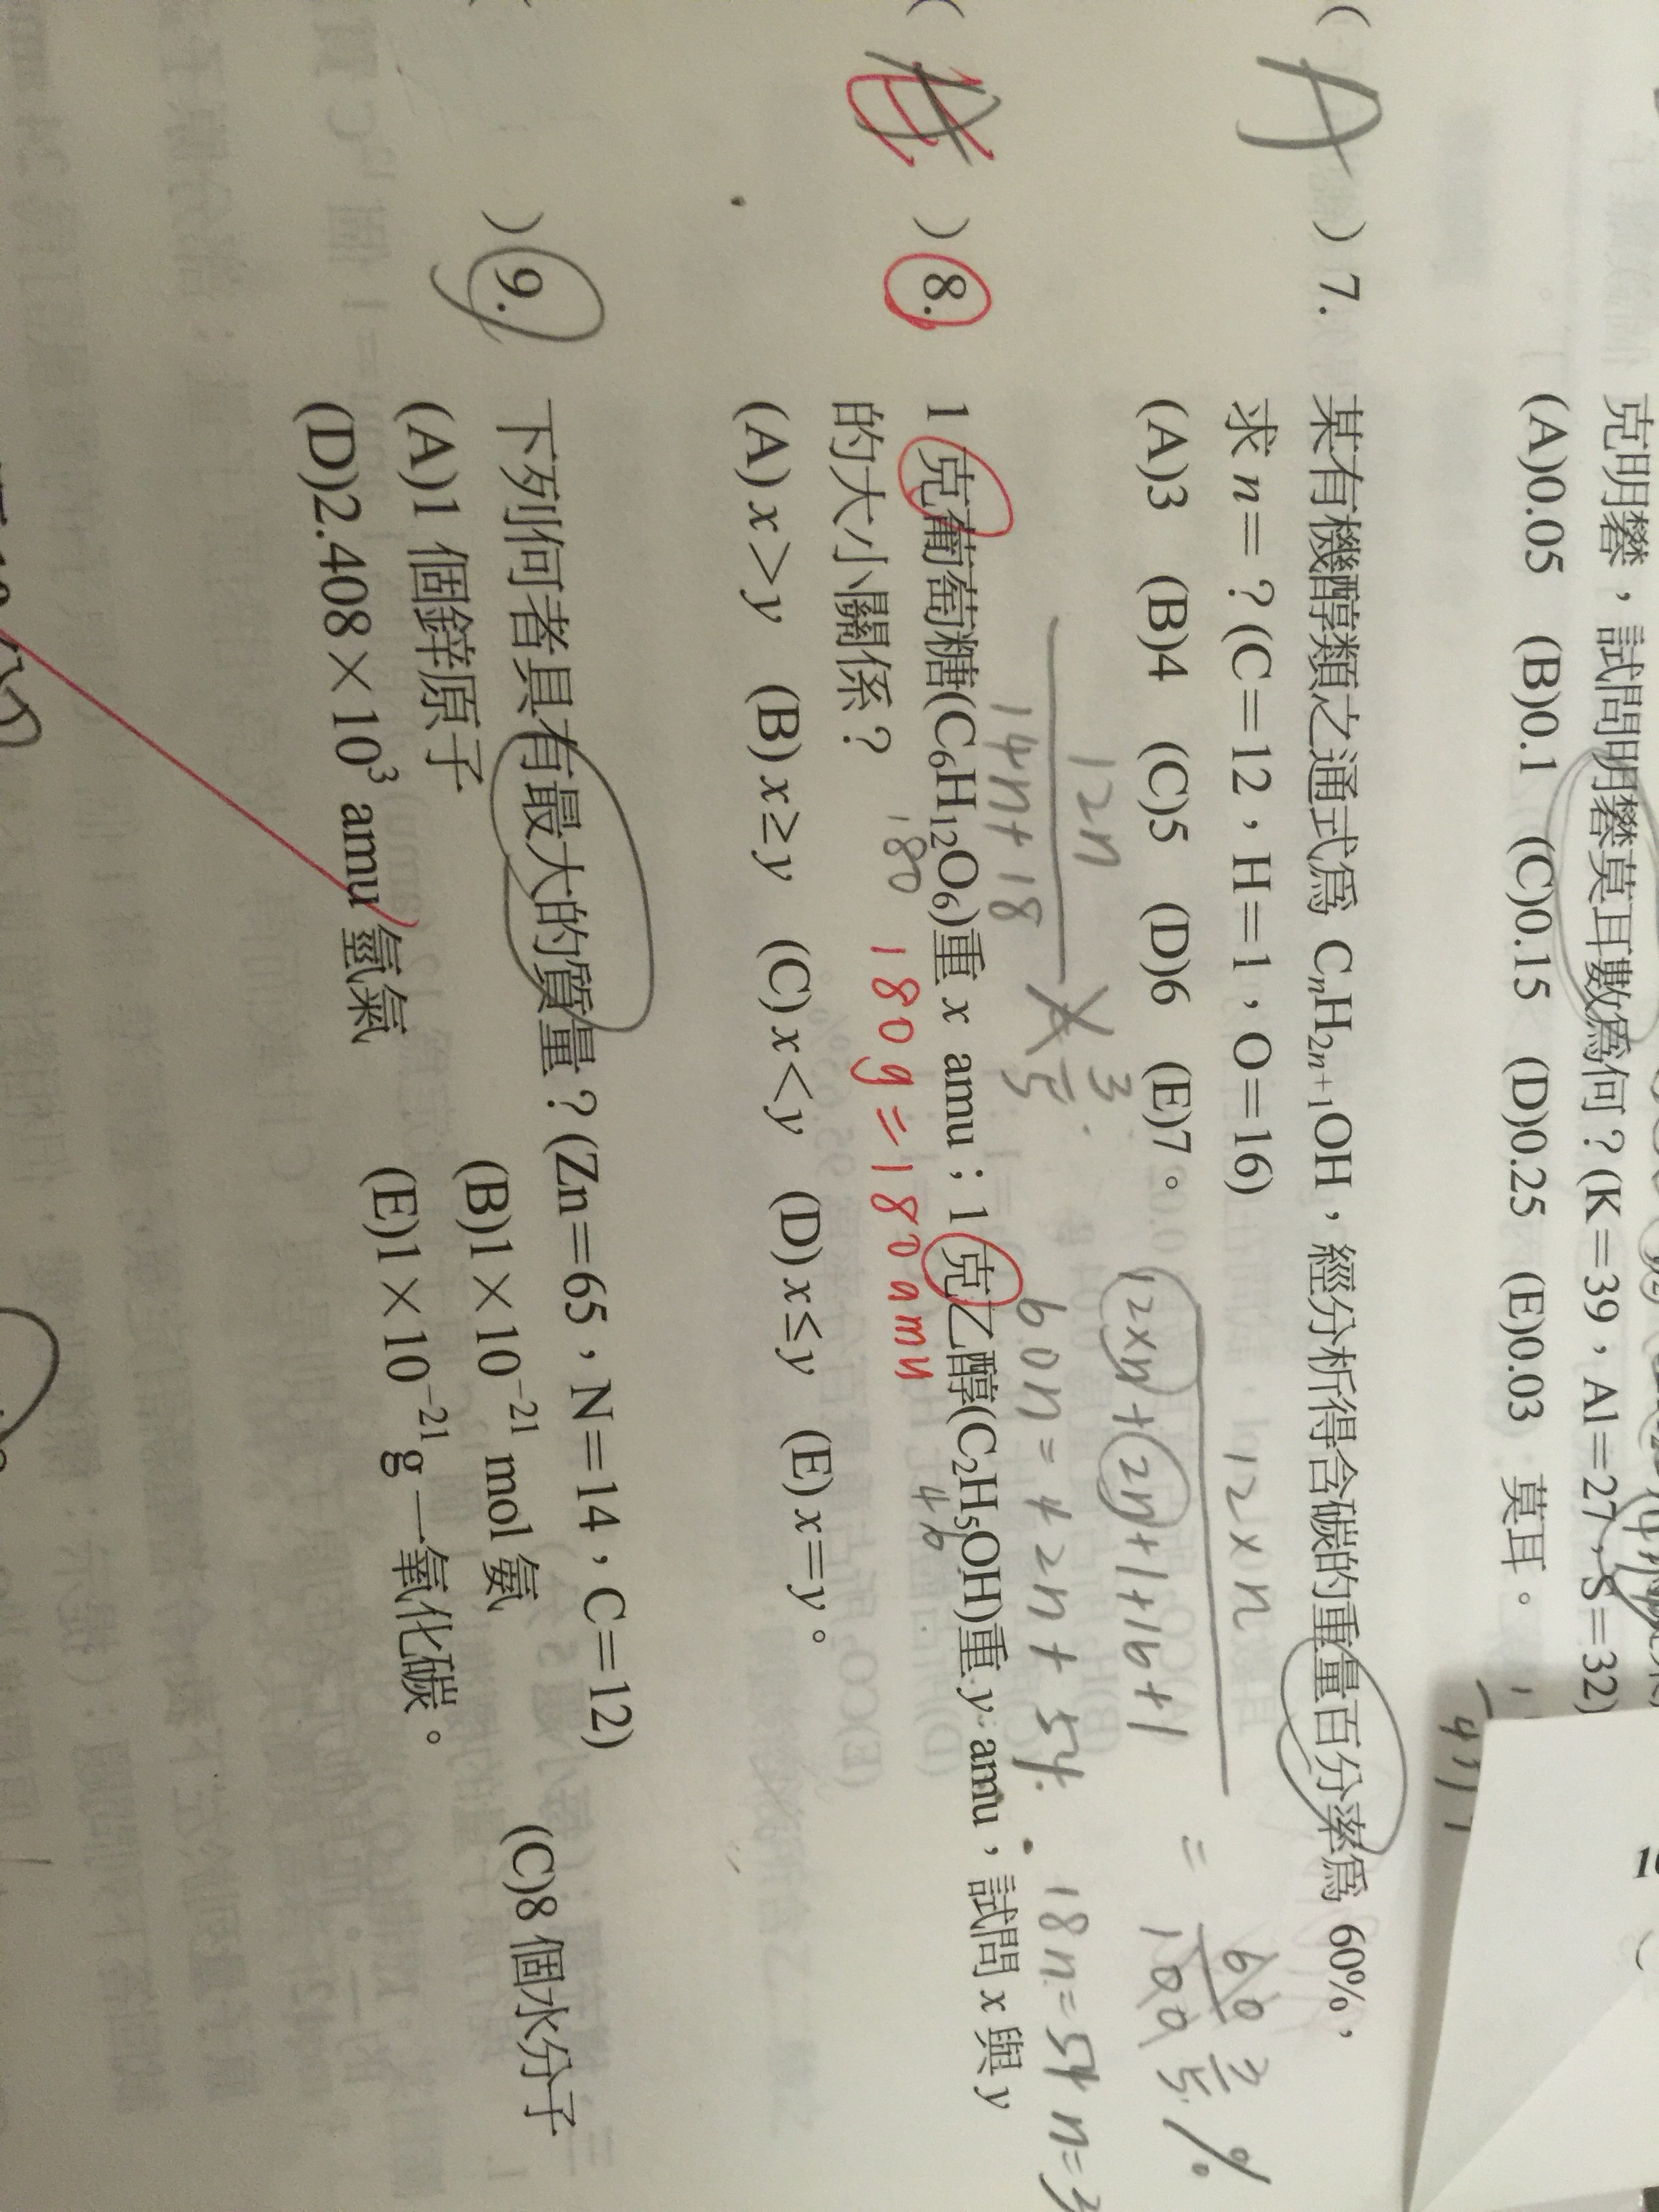 克明礬，試問明礬莫耳數為何？(K＝39，Al＝27，S＝32)
(A)0.05 (B)0.1 (C)0.15 (D)0.25 (E)0.03 莫耳。
( A ) 7. 某有機醇類之通式為 CnH2n+1OH，經分析得含碳的重量百分率為 60%，
求 n＝？(C＝12，H＝1，O＝16)
12×n
12×n+2n+1+16+1
= 60 3
100 5 %
(A)3 (B)4 (C)5 (D)6 (E)7。
12n
14n+18
3
5
60n = 42n + 54.
18n=54 n=3
( ) 8. 1 克葡萄糖(C6H12O6)重 x amu；1 克乙醇(C2H5OH)重 y amu，試問 x 與 y
180
46
的大小關係？
180g = 180amu
(A) x＞y (B) x≥y (C) x＜y (D) x≤y (E) x＝y。
) 9. 下列何者具有最大的質量？(Zn＝65，N＝14，C＝12)
(A)1 個鋅原子 (B)1×10−21 mol 氨 (C)8 個水分子
(D)2.408×103 amu 氫氣 (E)1×10−21 g 一氧化碳。